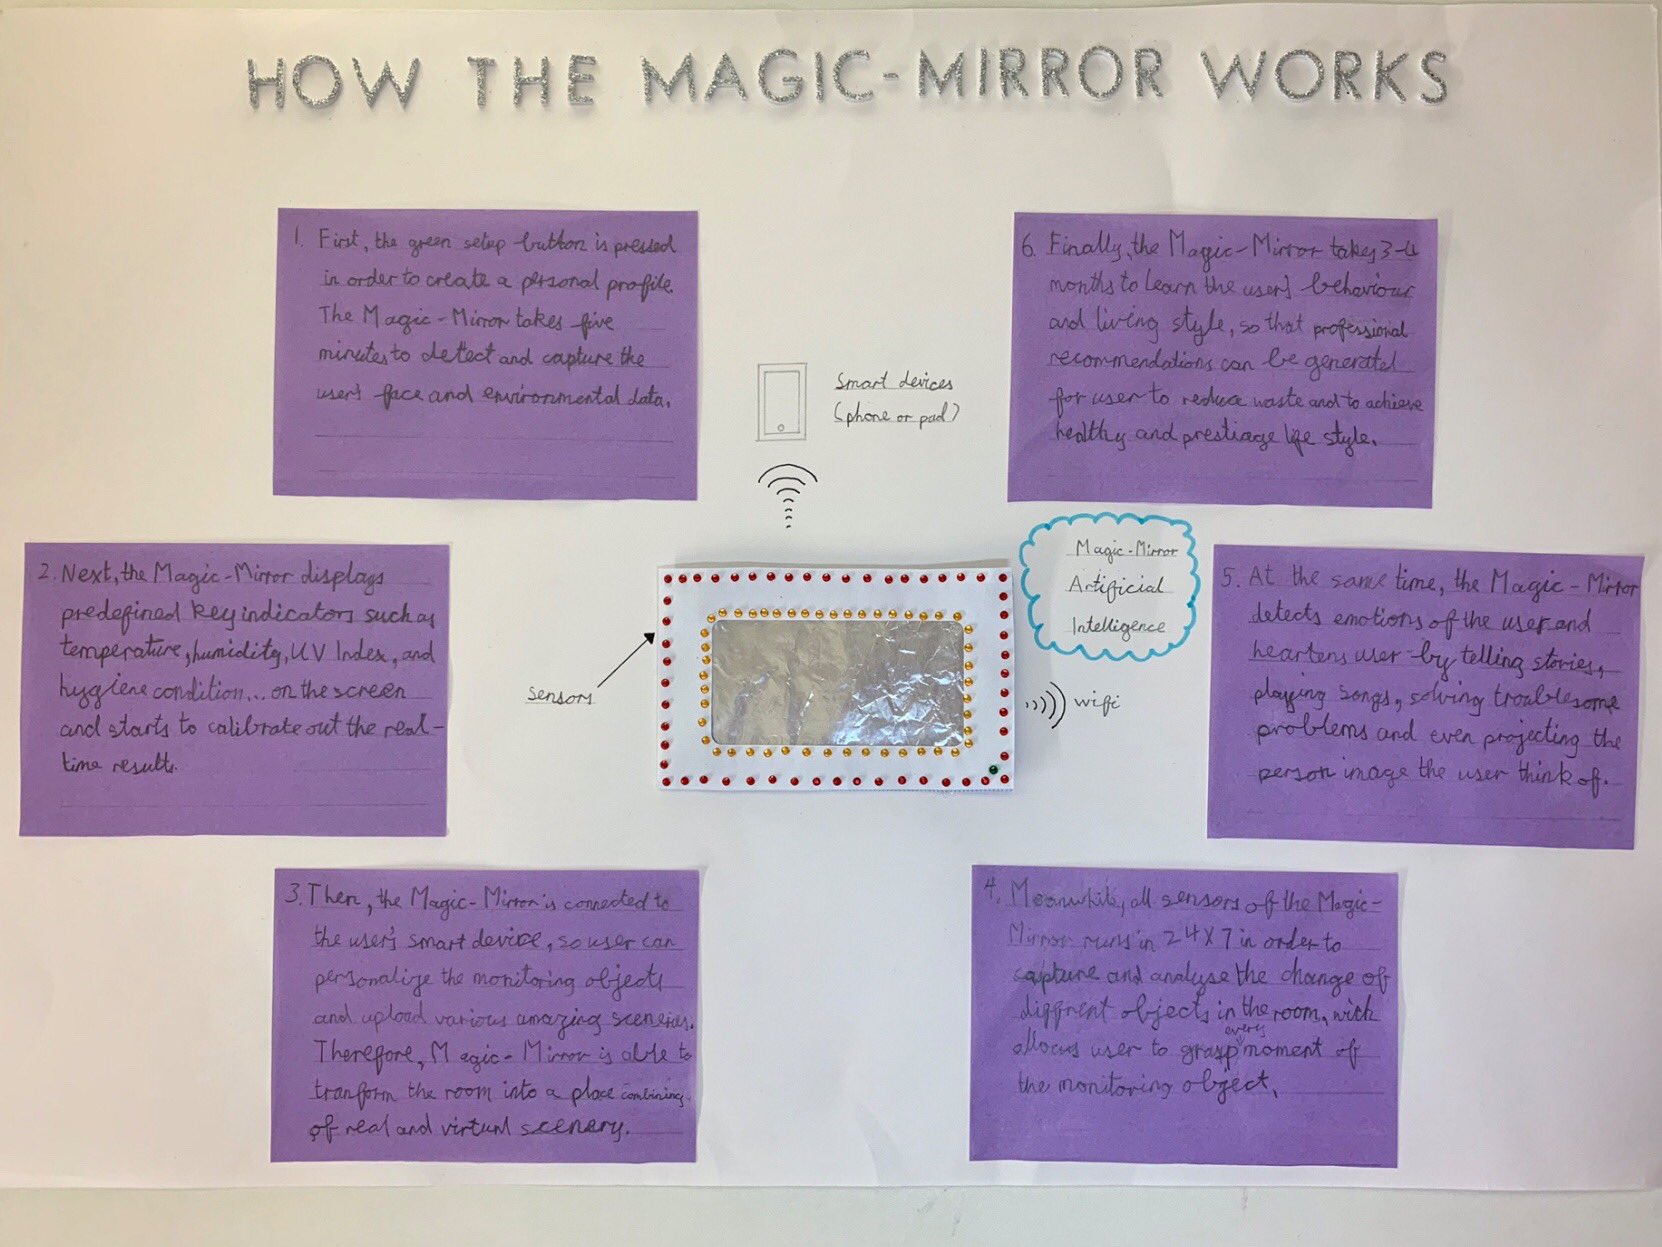 HOW THE MAGIC-MIRROR WORKS
1. First, the green setup button is pressed
in order to create a personal profile.
The Magic-Mirror takes five
minutes to detect and capture the
user's face and environmental data.
2. Next, the Magic-Mirror displays
predefined key indicators such as
temperature, humidity, UV Index, and
hygiene condition... on the screen
and starts to calibrate out the real-
time results.
3. Then, the Magic-Mirror is connected to
the user's smart device, so user can
personalize the monitoring objects
and upload various amazing sceneries.
Therefore, Magic-Mirror is able to
tranform the room into a place combining
of real and virtual scenery.
4. Meanwhile, all sensors of the Magic-
Mirror runs in 24X7 in order to
capture and analyse the change of
diffrent objects in the room, wich
allows user to grasp every moment of
the monitoring object.
5. At the same time, the Magic-Mirror
detects emotions of the user and
heartens user by telling stories,
playing songs, solving troublesome
problems and even projecting the
person image the user think of.
6. Finally, the Magic-Mirror takes 3-4
months to learn the user's behaviour
and living style, so that professional
recommendations can be generated
for user to reduce waste and to achieve
healthy and prestiage life style.
Smart devices
(phone or pad)
sensors
Magic-Mirror
Artificial
Intelligence
wifi